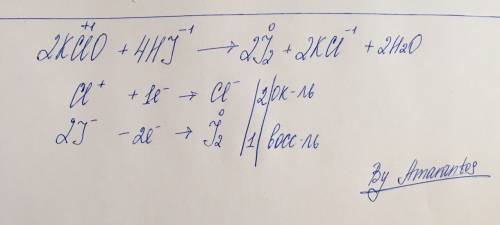 2KClO⁺¹ + 4HJ⁻¹ → 2J₂⁰ + 2KCl⁻¹ + 2H₂O
Cl⁺ + 1e⁻ → Cl⁻ |2| ок-ль
2J⁻ - 2e⁻ → J₂⁰ |1| восс-ль
By Amarantos